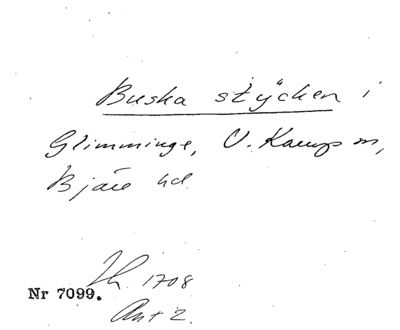 Buska stycken i
Glimminge, V. Karups sn,
Bjäre hd.
1708
Nr 7099.
Ant 2.